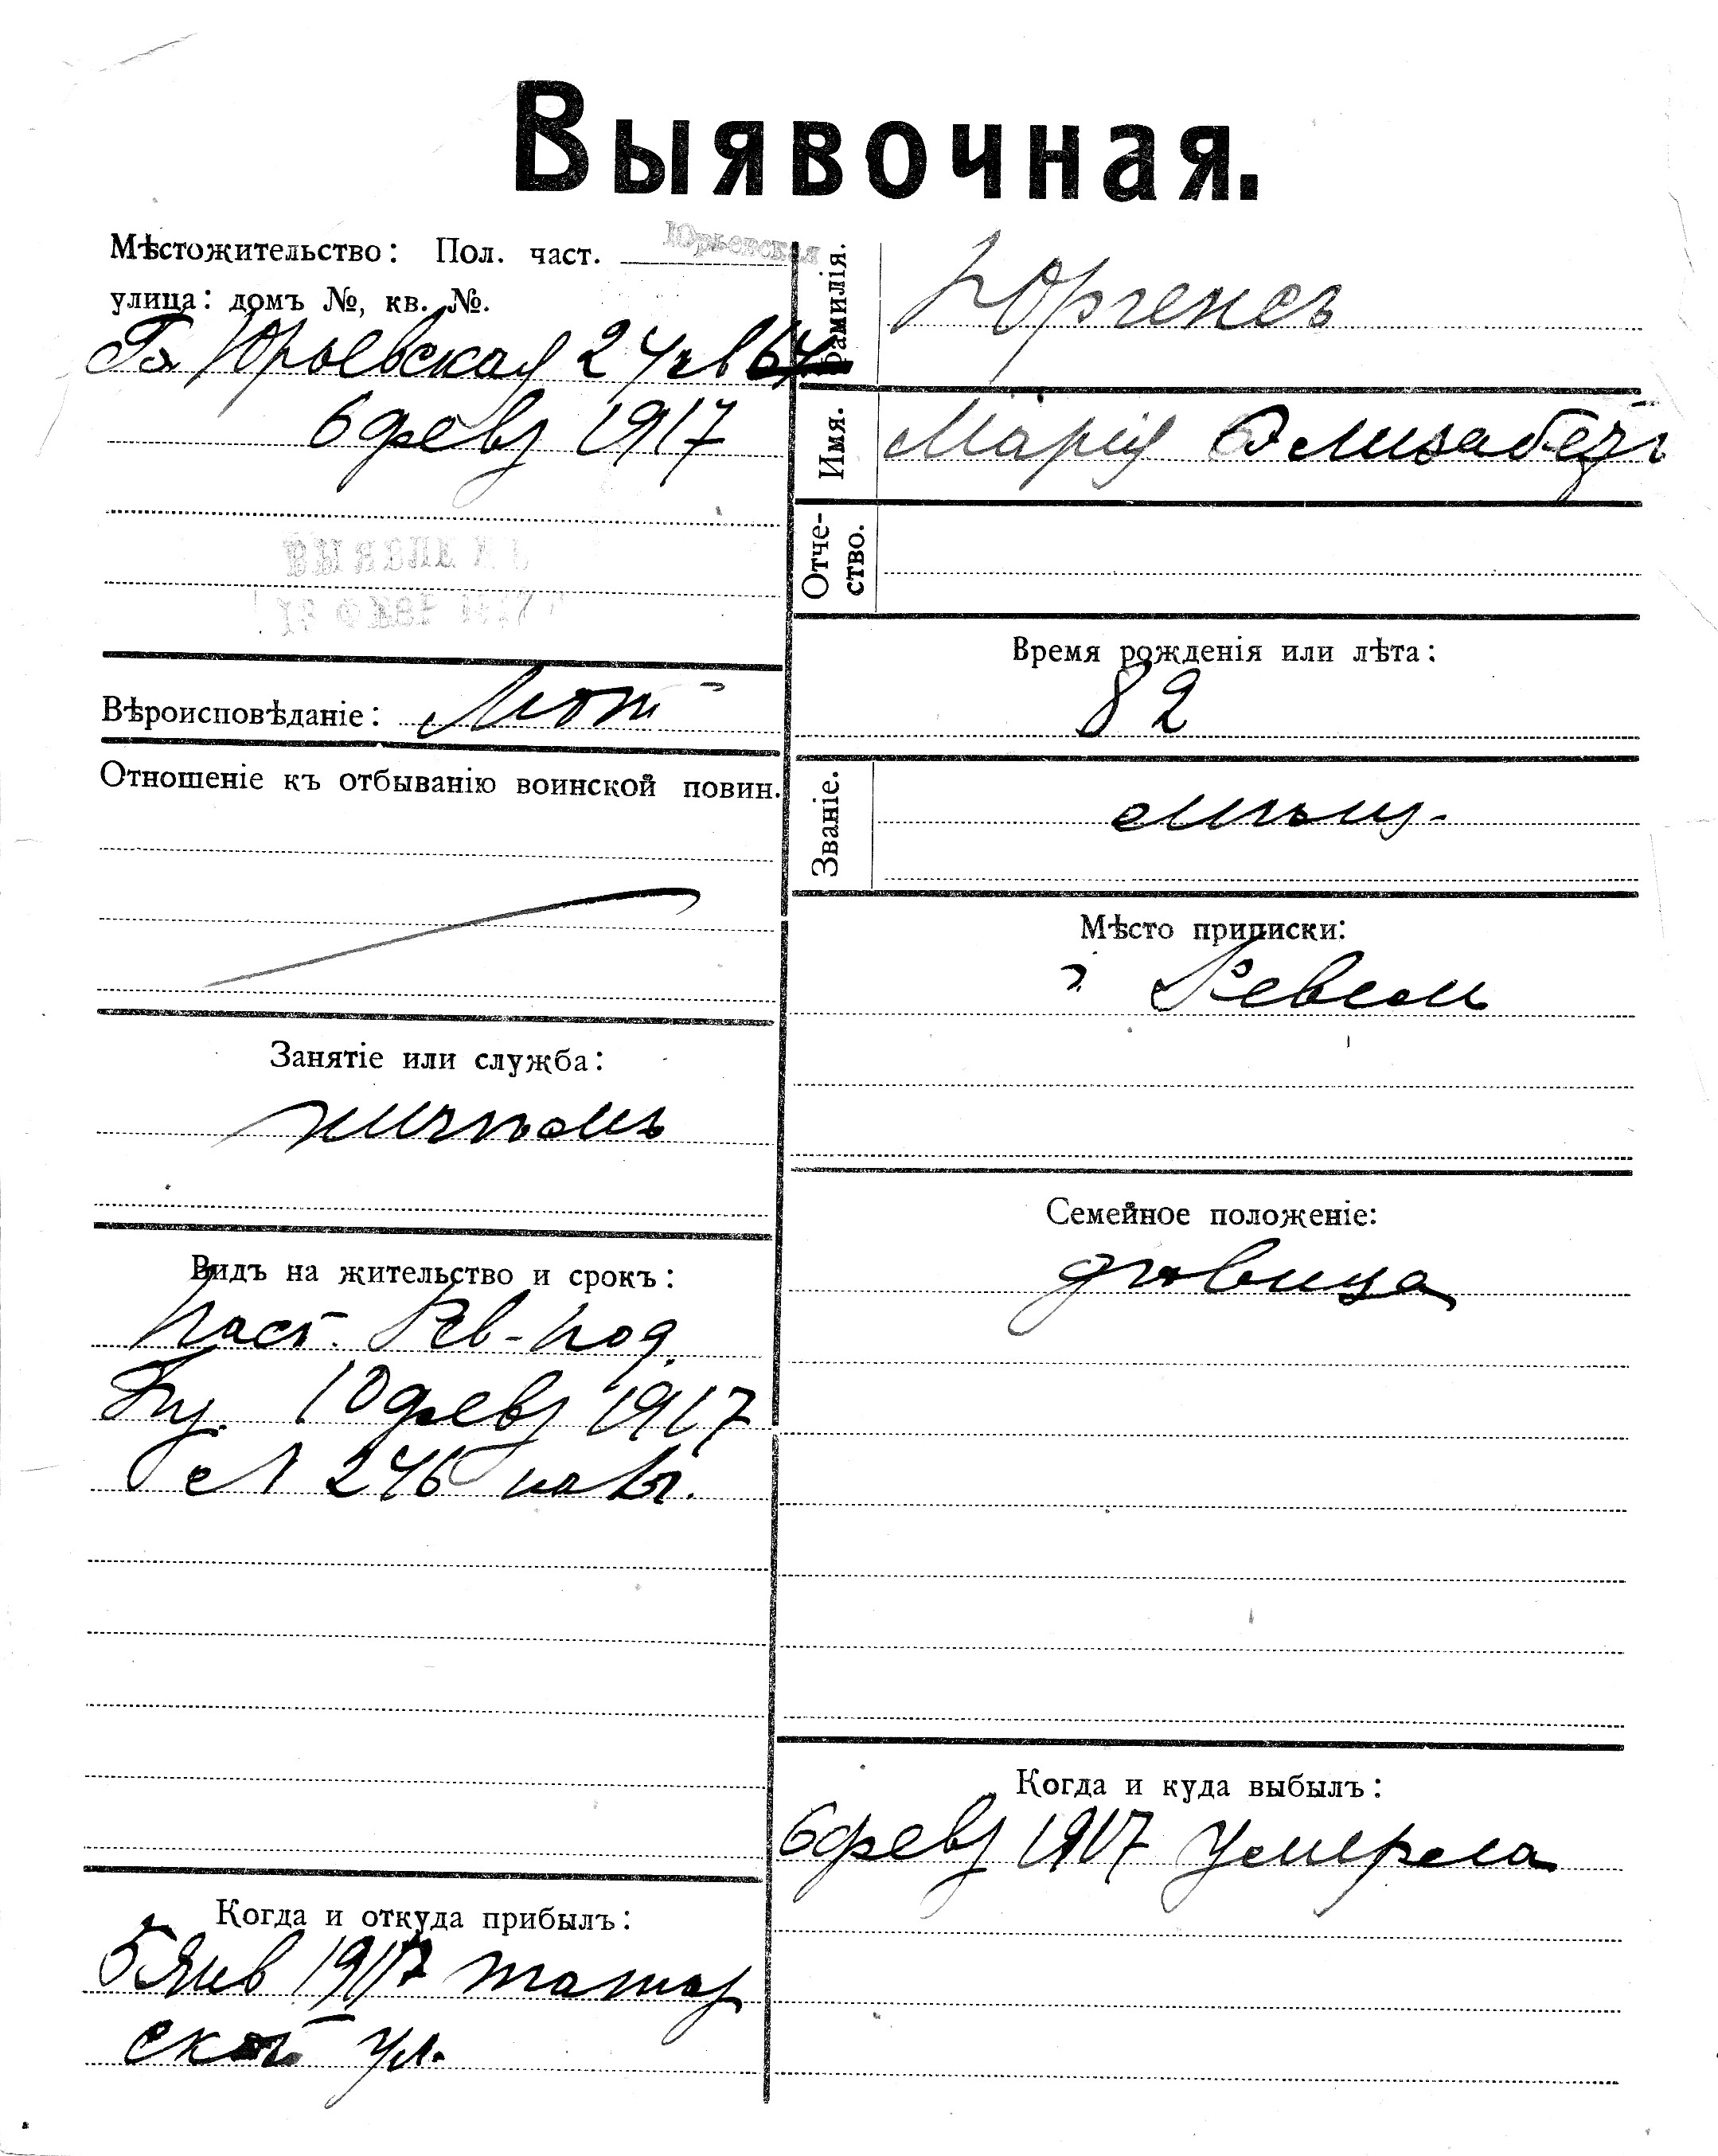 Выявочная.
Мѣстожительство: Пол. част. Юрьевская
улица: домъ №, кв. №.
Юрьевская 24 кв 64
6 февр 1917
ВЫЯВЛЕНЪ
ФЕВР 1917
Вѣроисповѣданіе: Лют
Отношеніе къ отбыванію воинской повин.
Занятіе или служба:
Видъ на жительство и срокъ:
Пасп. Рев-Под
10 февр 1917
246
Когда и откуда прибылъ:
5 Янв 1917 татар
ской ул.
Фамилія. Юргенсъ
Имя. Марія Элизабетъ
Отче-
ство.
Время рожденія или лѣта:
82
Званіе. мѣщ.
Мѣсто приписки:
г. Ревель
Семейное положеніе:
дѣвица
Когда и куда выбылъ:
6 февр 1917 умерла